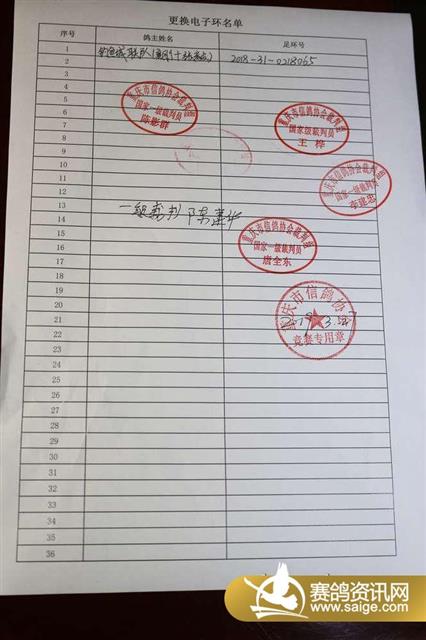 更换电子环名单
序号 鸽主姓名 足环号
1 2018-31-0218065
2
3
4
5
6
7
8
9
10
11
12
13
14
15
16
17
18
19
20
21
22
23
24
25
26
27
28
29
30
31
32
33
34
35
36
重庆市信鸽协会裁判组
国家一级裁判员
陈彭群
重庆市信鸽协会裁判组
国家级裁判员
王桦
重庆市信鸽协会裁判组
国家一级裁判员
李建忠
一级裁判
重庆市信鸽协会裁判组
国家一级裁判员
唐全东
重庆市信鸽协会
2019.3.27
竞赛专用章
赛鸽资讯网
www.saige.com